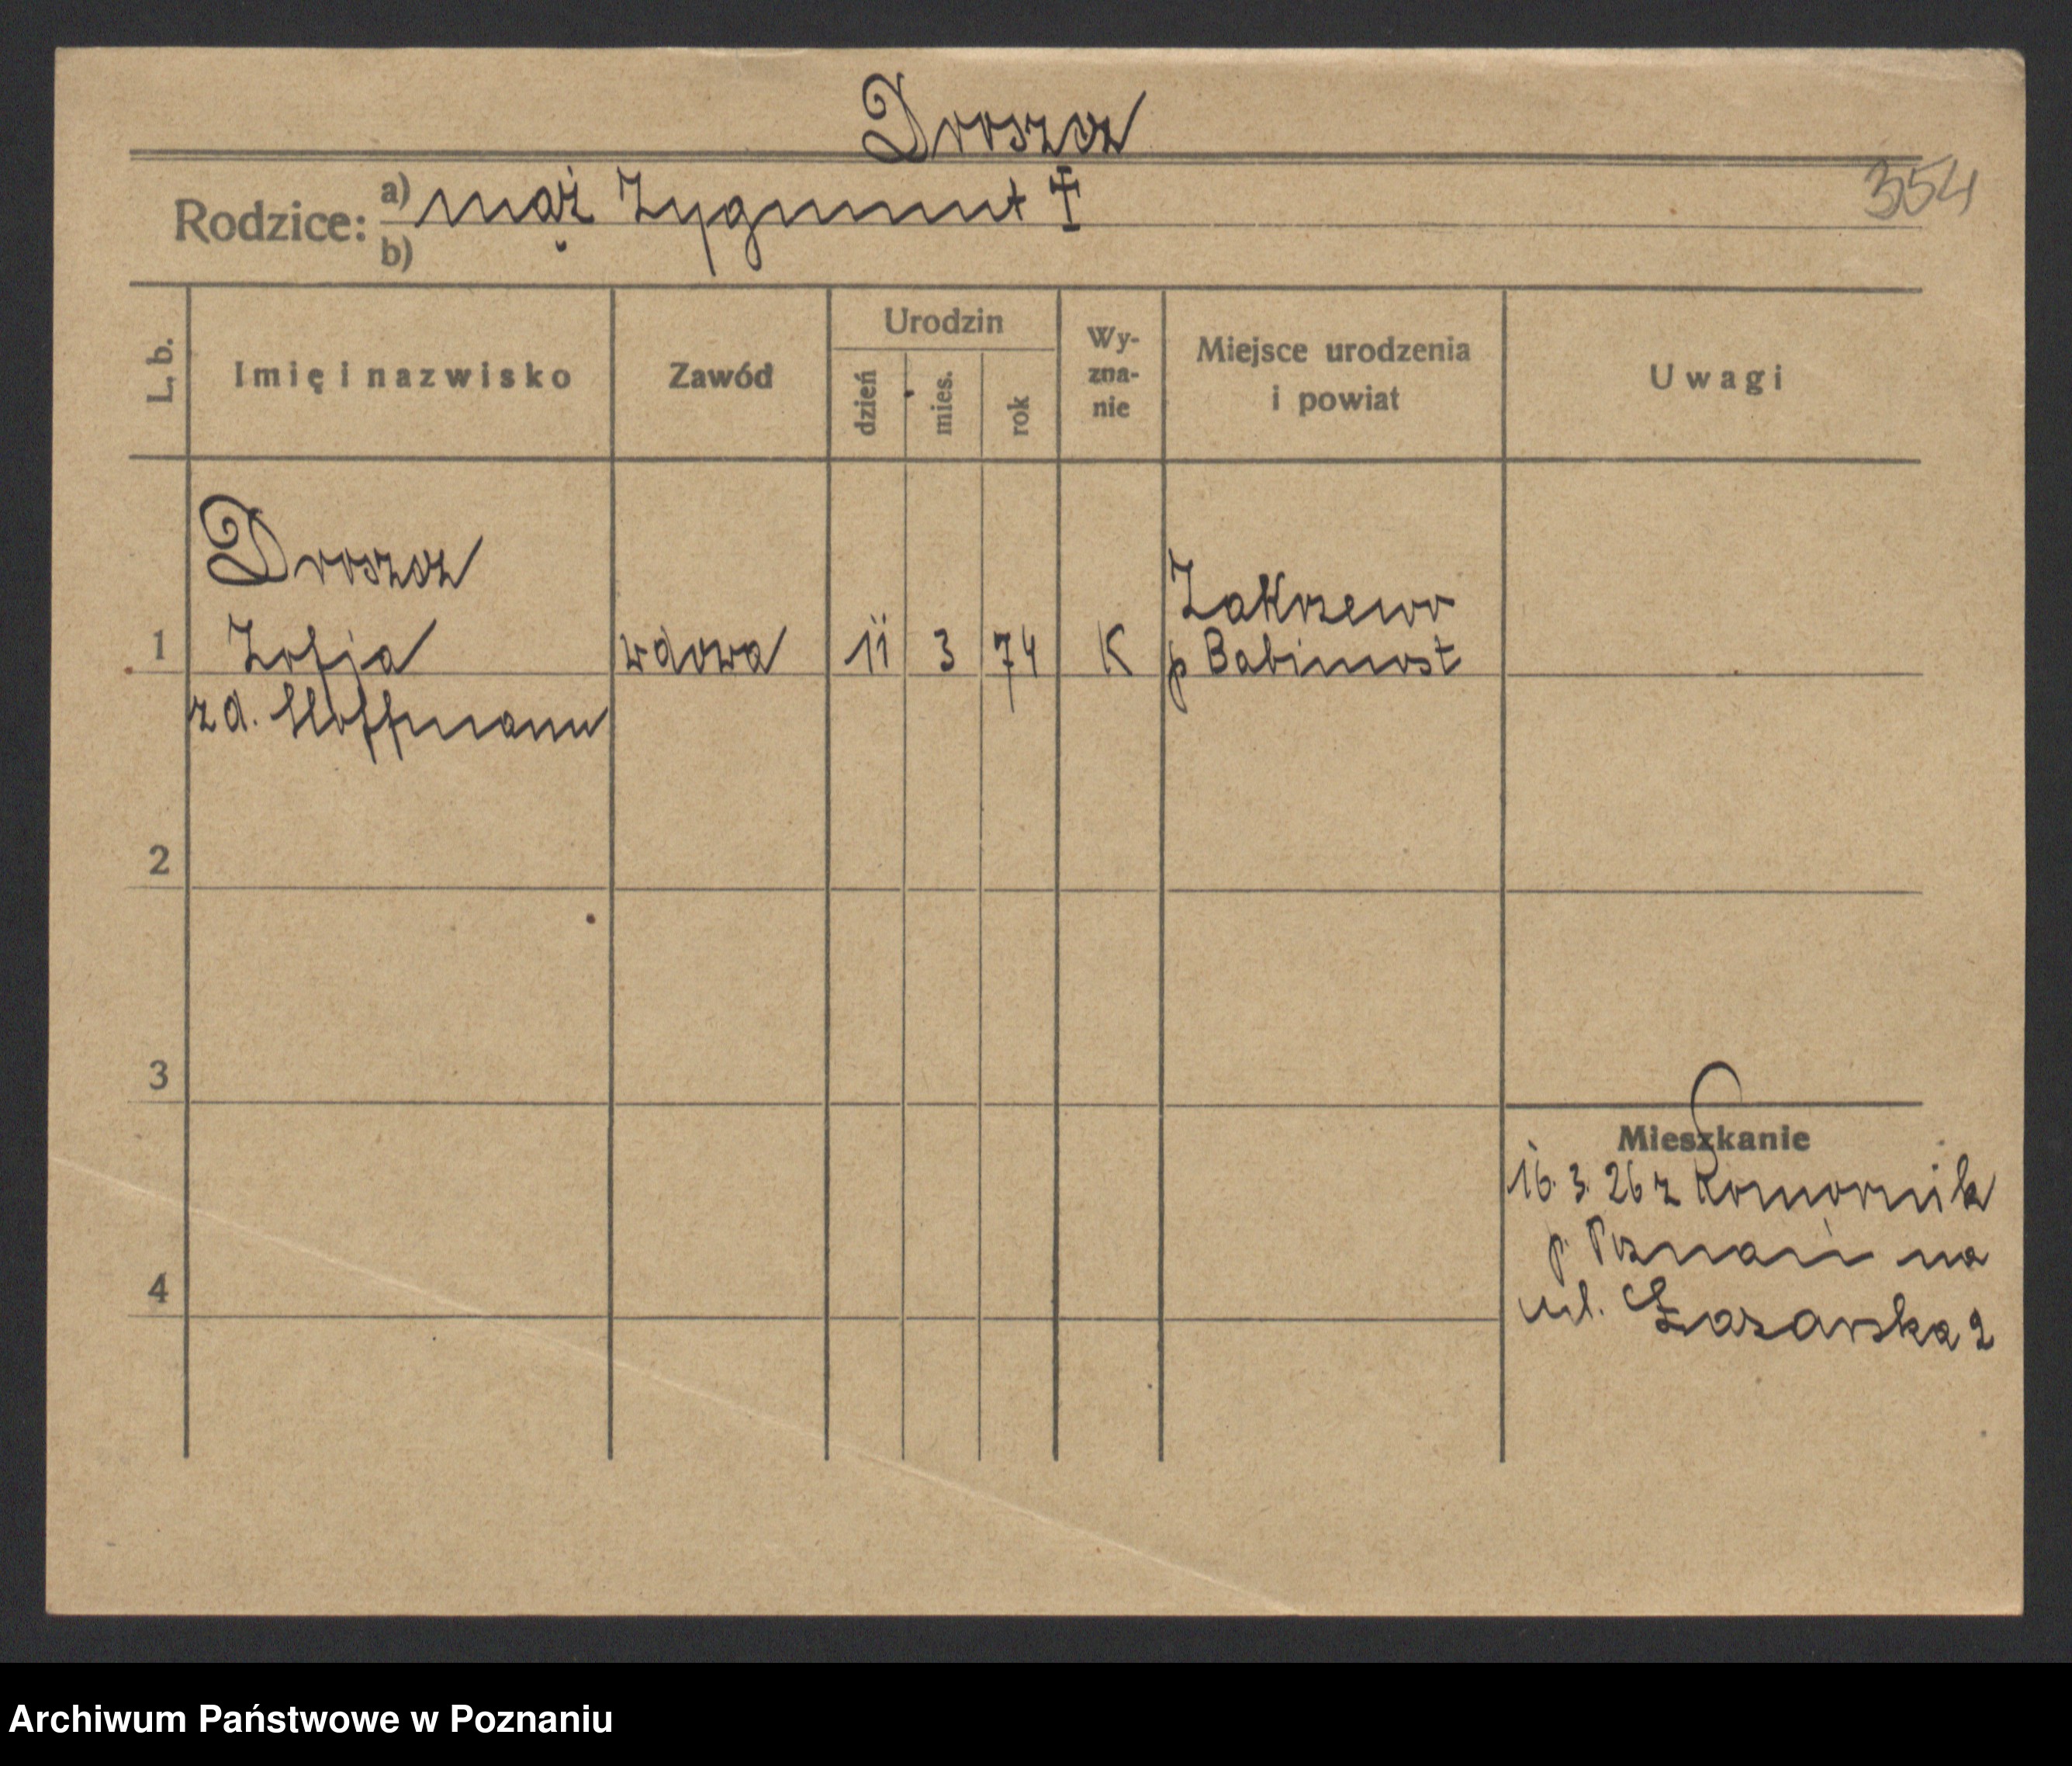 Droszcz
354
Rodzice: a) mąż Zygmunt ‡
b)
L. b. Imię i nazwisko Zawód Urodzin dzień mies. rok Wyzna-nie Miejsce urodzenia i powiat Uwagi
Droszcz
Zakrzewo
1 Zofja wdowa 11 3 74 K p Babimost
z d. Hoffmann
2
3
Mieszkanie
16. 3. 26 z Komornik
p. Poznań na
4
ul. Łazarska 2
Archiwum Państwowe w Poznaniu